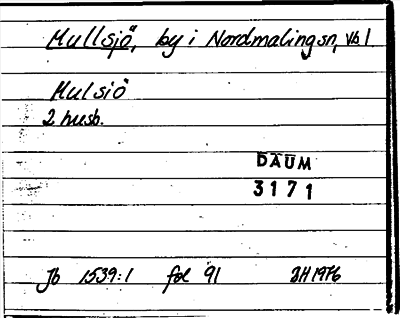 Mullsjö, by i Nordmalingsn, Vb l
Mulsiö
2 husb.
DAUM
3171
Jb 1539:1 fol 91 BH 1976